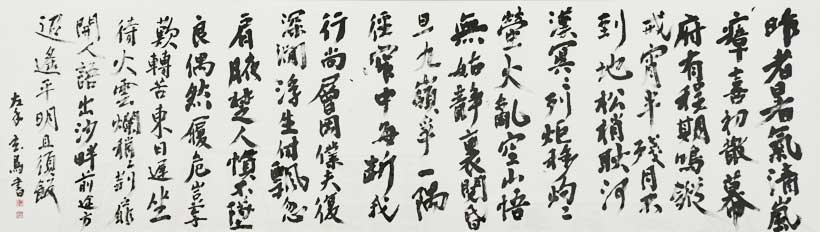 昨者暑氣清嵐
瘴喜初散幕
府有程期鳴鑣
戒宵半殘月不
到地松梢耿河
漢冥〻列炬移灼〻
螢火亂空山悟
無始靜裏聞昏
旦九嶺爭一隅
徑窄中每斷我
行尚層岡僕夫復
深澗浮生付飄忽
肩腋楚人慣不墜
良偶然履危豈寧
歎轉苦東日遲坐
待火雲爛稍〻荊扉
開人語出沙畔前途方
迢遙平明且須飯
書